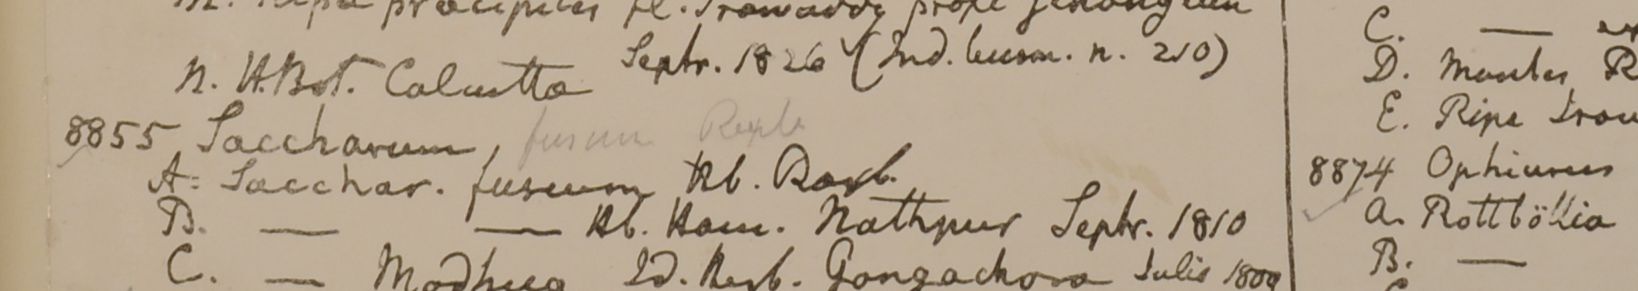 M. Ripa procipites fl. Irawaddy prope
Septr. 1826 (Ind. burm. n. 210)
N. H.Bot. Calcutta
8855 Saccharum, fuscum Roxb
A. Sacchar. fuscum Hb. Roxb.
B. — — Hb. Ham. Nathpur Septr. 1810
C. — Modhua Id. Herb. Gongachora Julis 1809
C. —
D. Montes
E. Ripa Iraw
8874 Ophiurus
a. Rottböllia
B. —